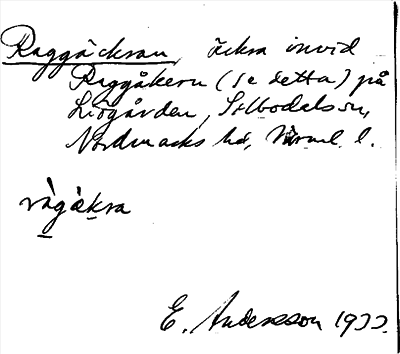 Raggåckran, åckra invid
Raggåkern (se detta) på
Lidgården, Silbodals sn,
Nordmarks hd, Värml. l.
rågåkra
E. Andersson 1933.